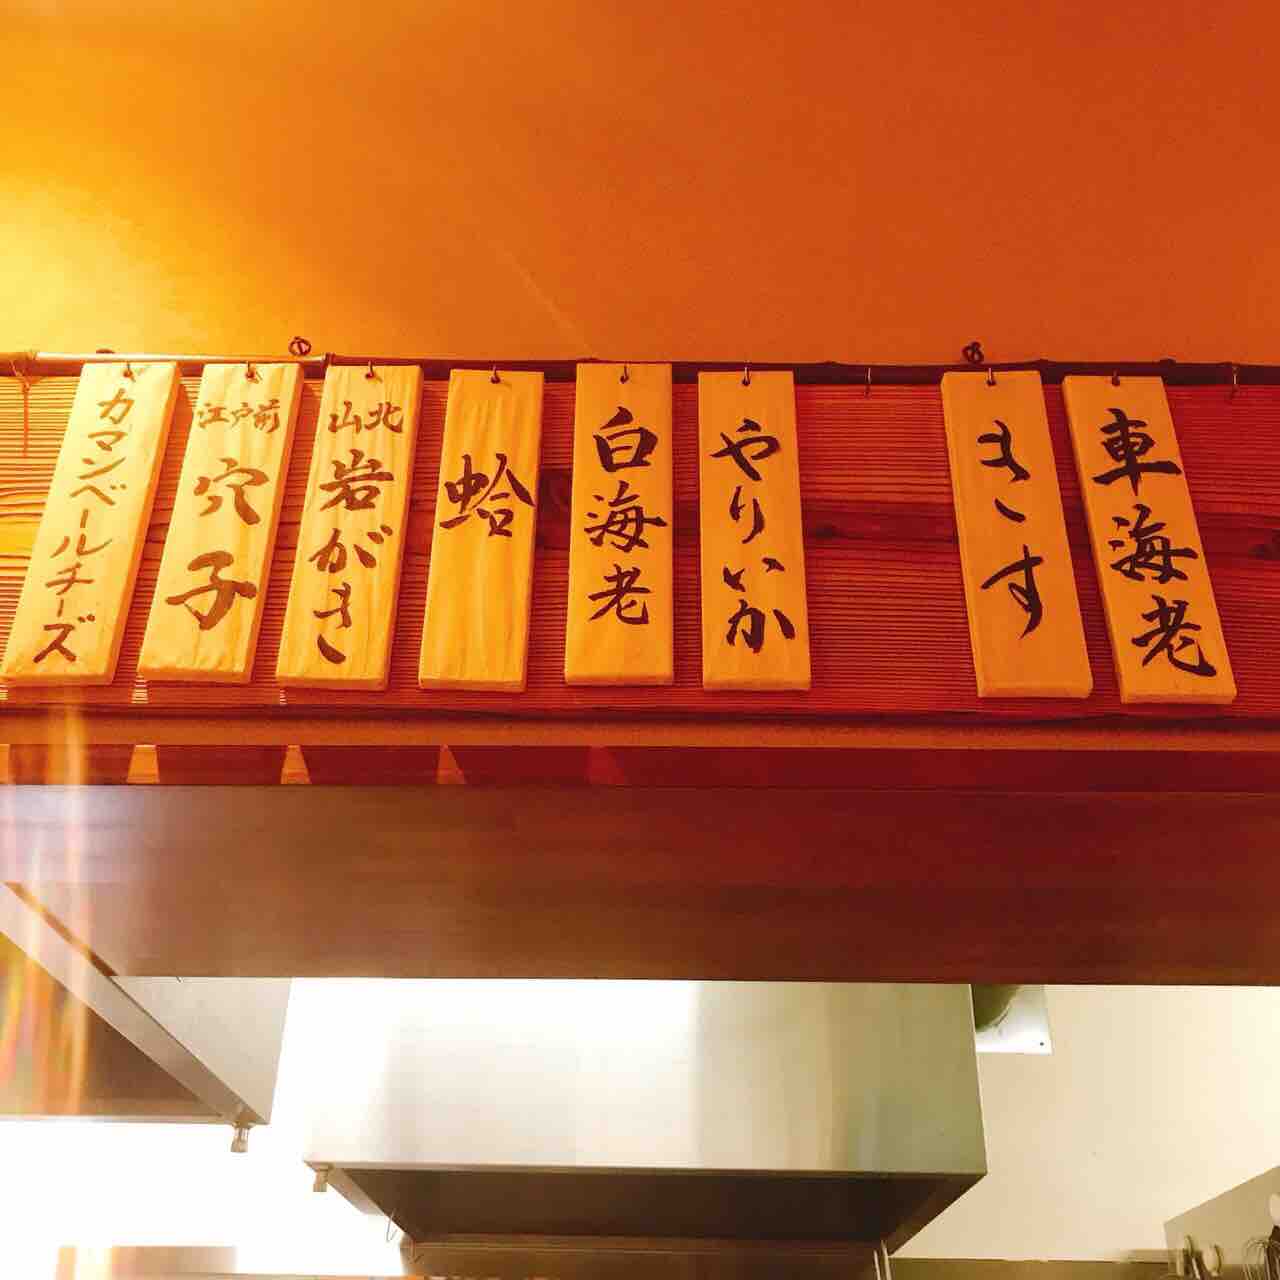 車海老
きす
やりいか
白海老
蛤
山北
岩がき
江戸前
穴子
カマンベールチーズ